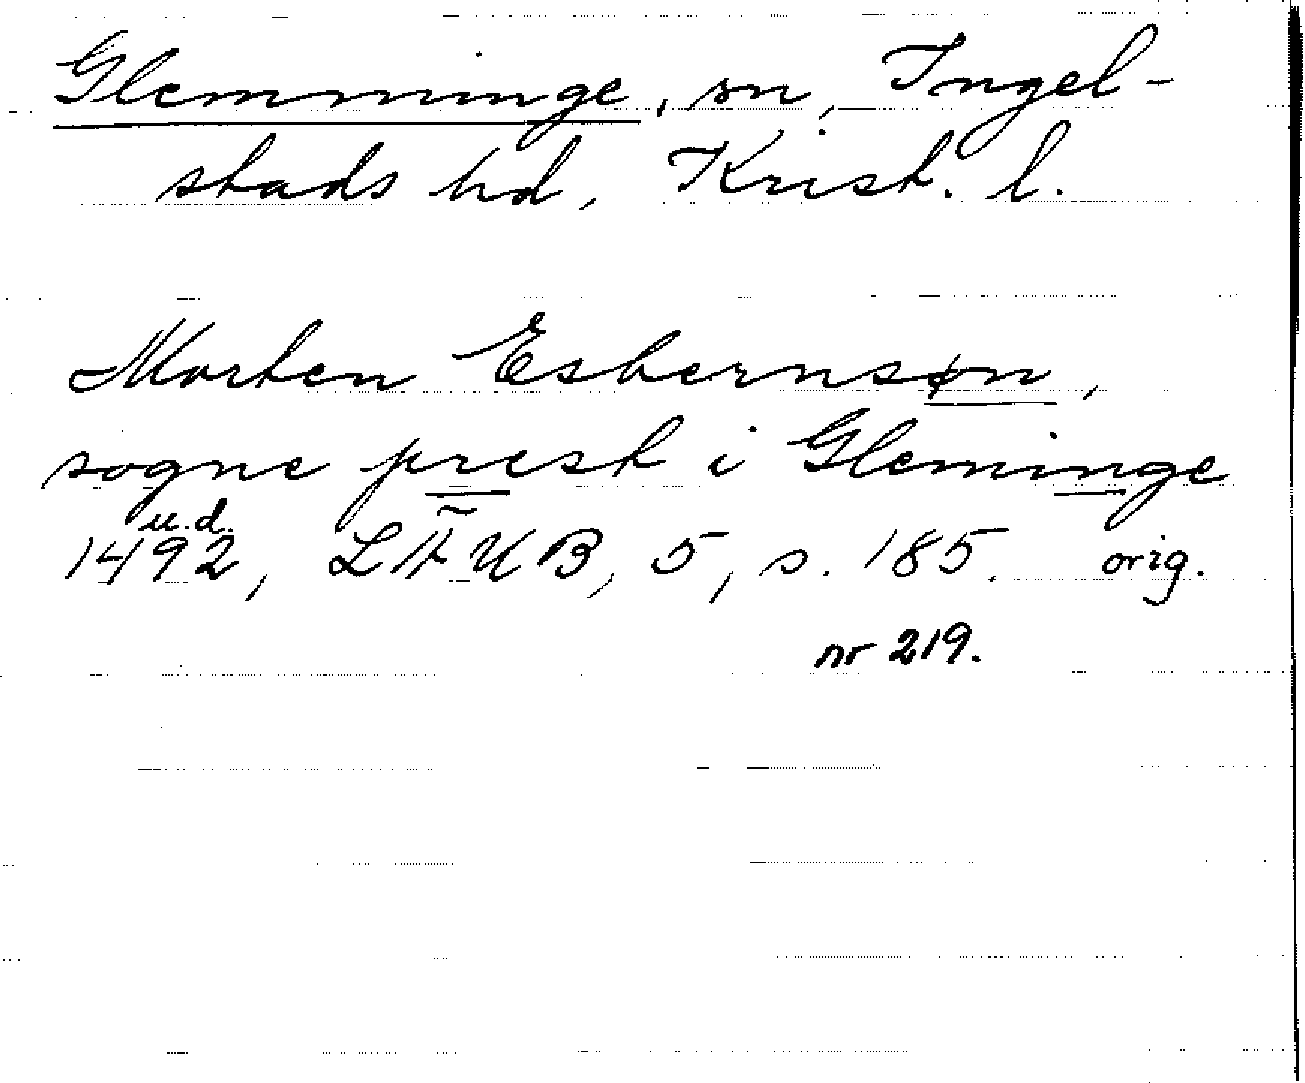 Glemminge, sn, Ingel-
stads hd, Krist. l.
Morten Esbernsøn,
sogne prest i Gleminge
u.d.
1492, LÄUB, 5, s. 185. orig.
nr 219.